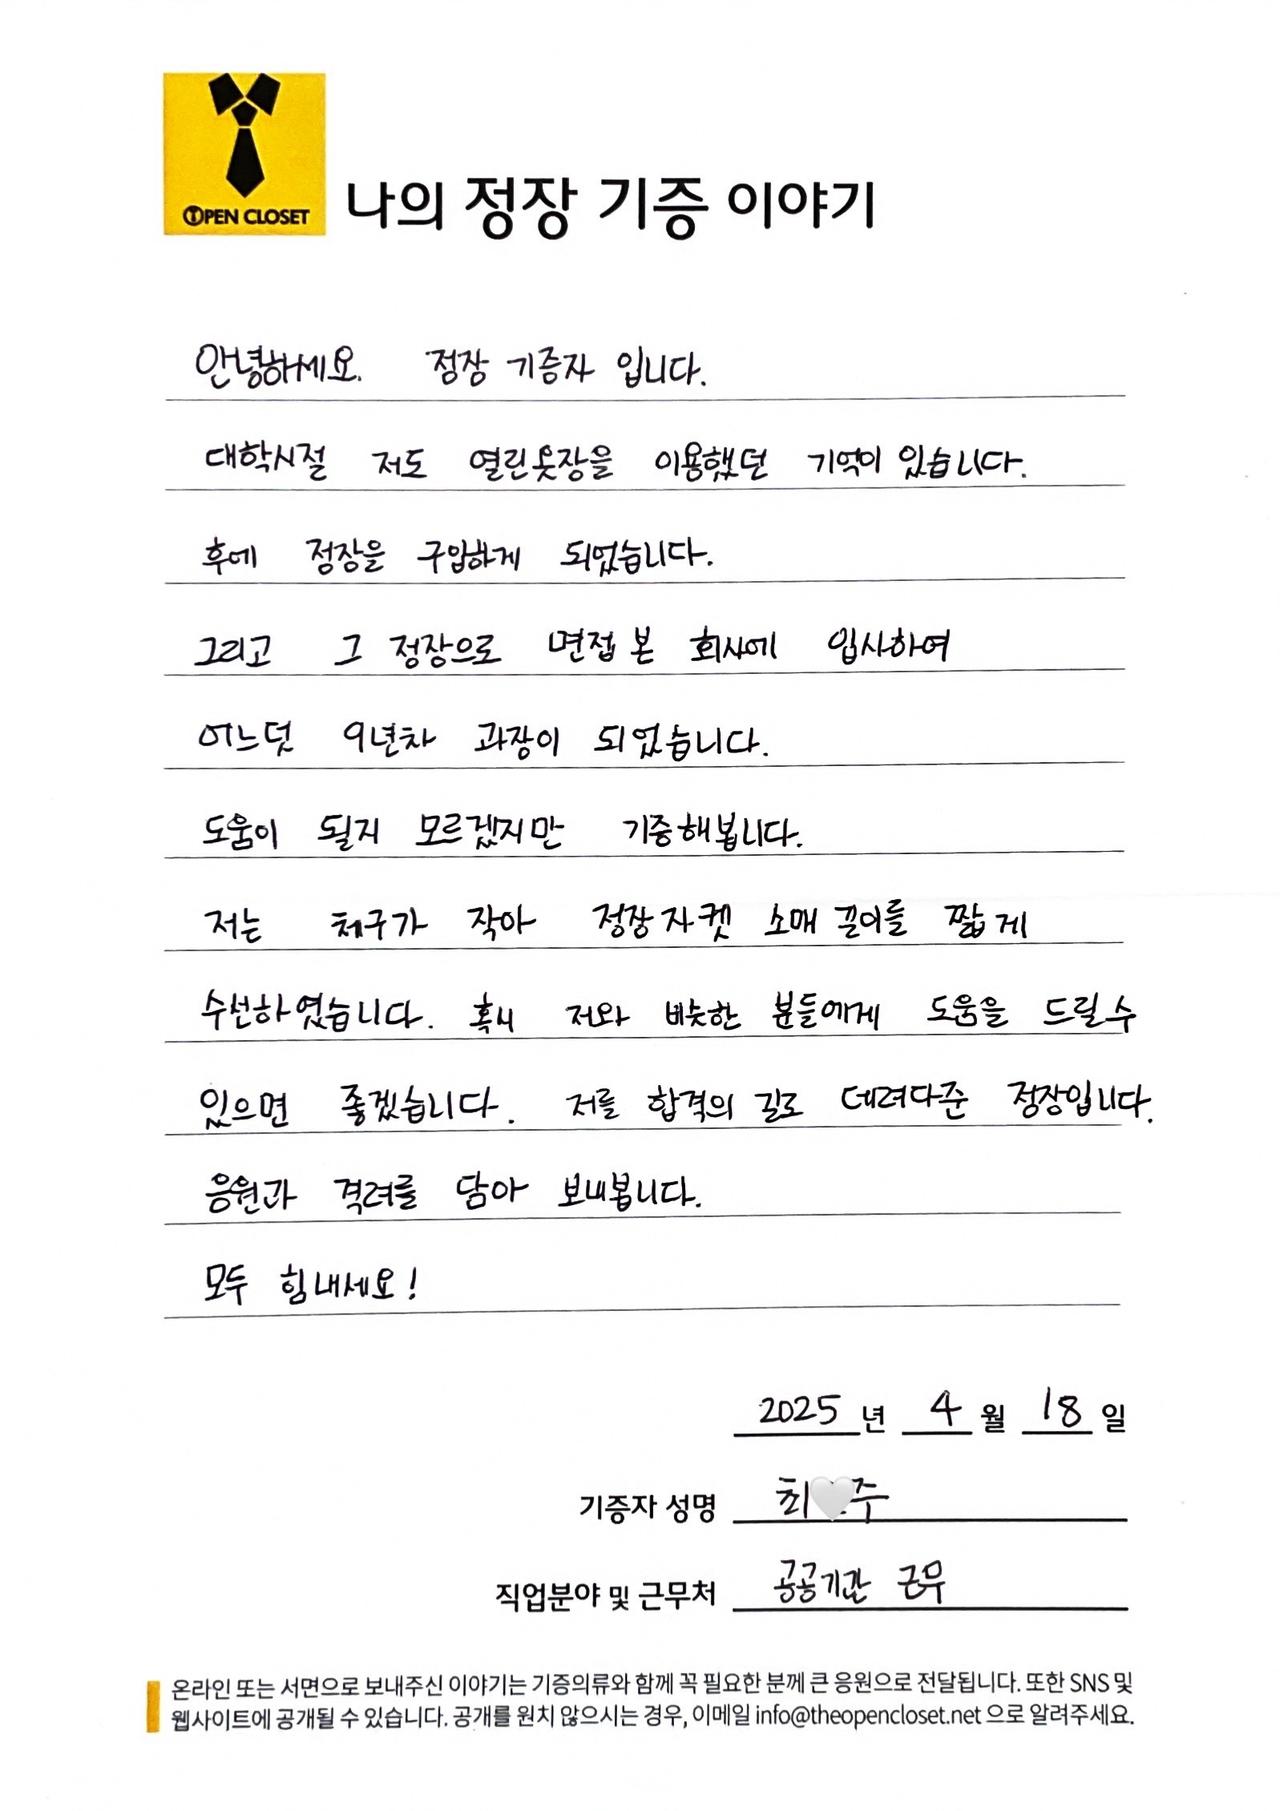 OPEN CLOSET
나의 정장 기증 이야기
안녕하세요. 정장 기증자 입니다.
대학시절 저도 열린옷장을 이용했던 기억이 있습니다.
후에 정장을 구입하게 되었습니다.
그리고 그 정장으로 면접 본 회사에 입사하여
어느덧 9년차 과장이 되었습니다.
도움이 될지 모르겠지만 기증해봅니다.
저는 체구가 작아 정장자켓 소매 끈이를 짧게
수선하였습니다. 혹시 저와 비슷한 분들에게 도움을 드릴 수
있으면 좋겠습니다. 저를 합격의 길로 데려다준 정장입니다.
응원과 격려를 담아 보내봅니다.
모두 힘내세요!
2025년 4월 18일
기증자 성명 최🤍주
직업분야 및 근무처 공공기관 근무
온라인 또는 서면으로 보내주신 이야기는 기증의류와 함께 꼭 필요한 분께 큰 응원으로 전달됩니다. 또한 SNS 및
웹사이트에 공개될 수 있습니다. 공개를 원치 않으시는 경우, 이메일 info@theopencloset.net 으로 알려주세요.